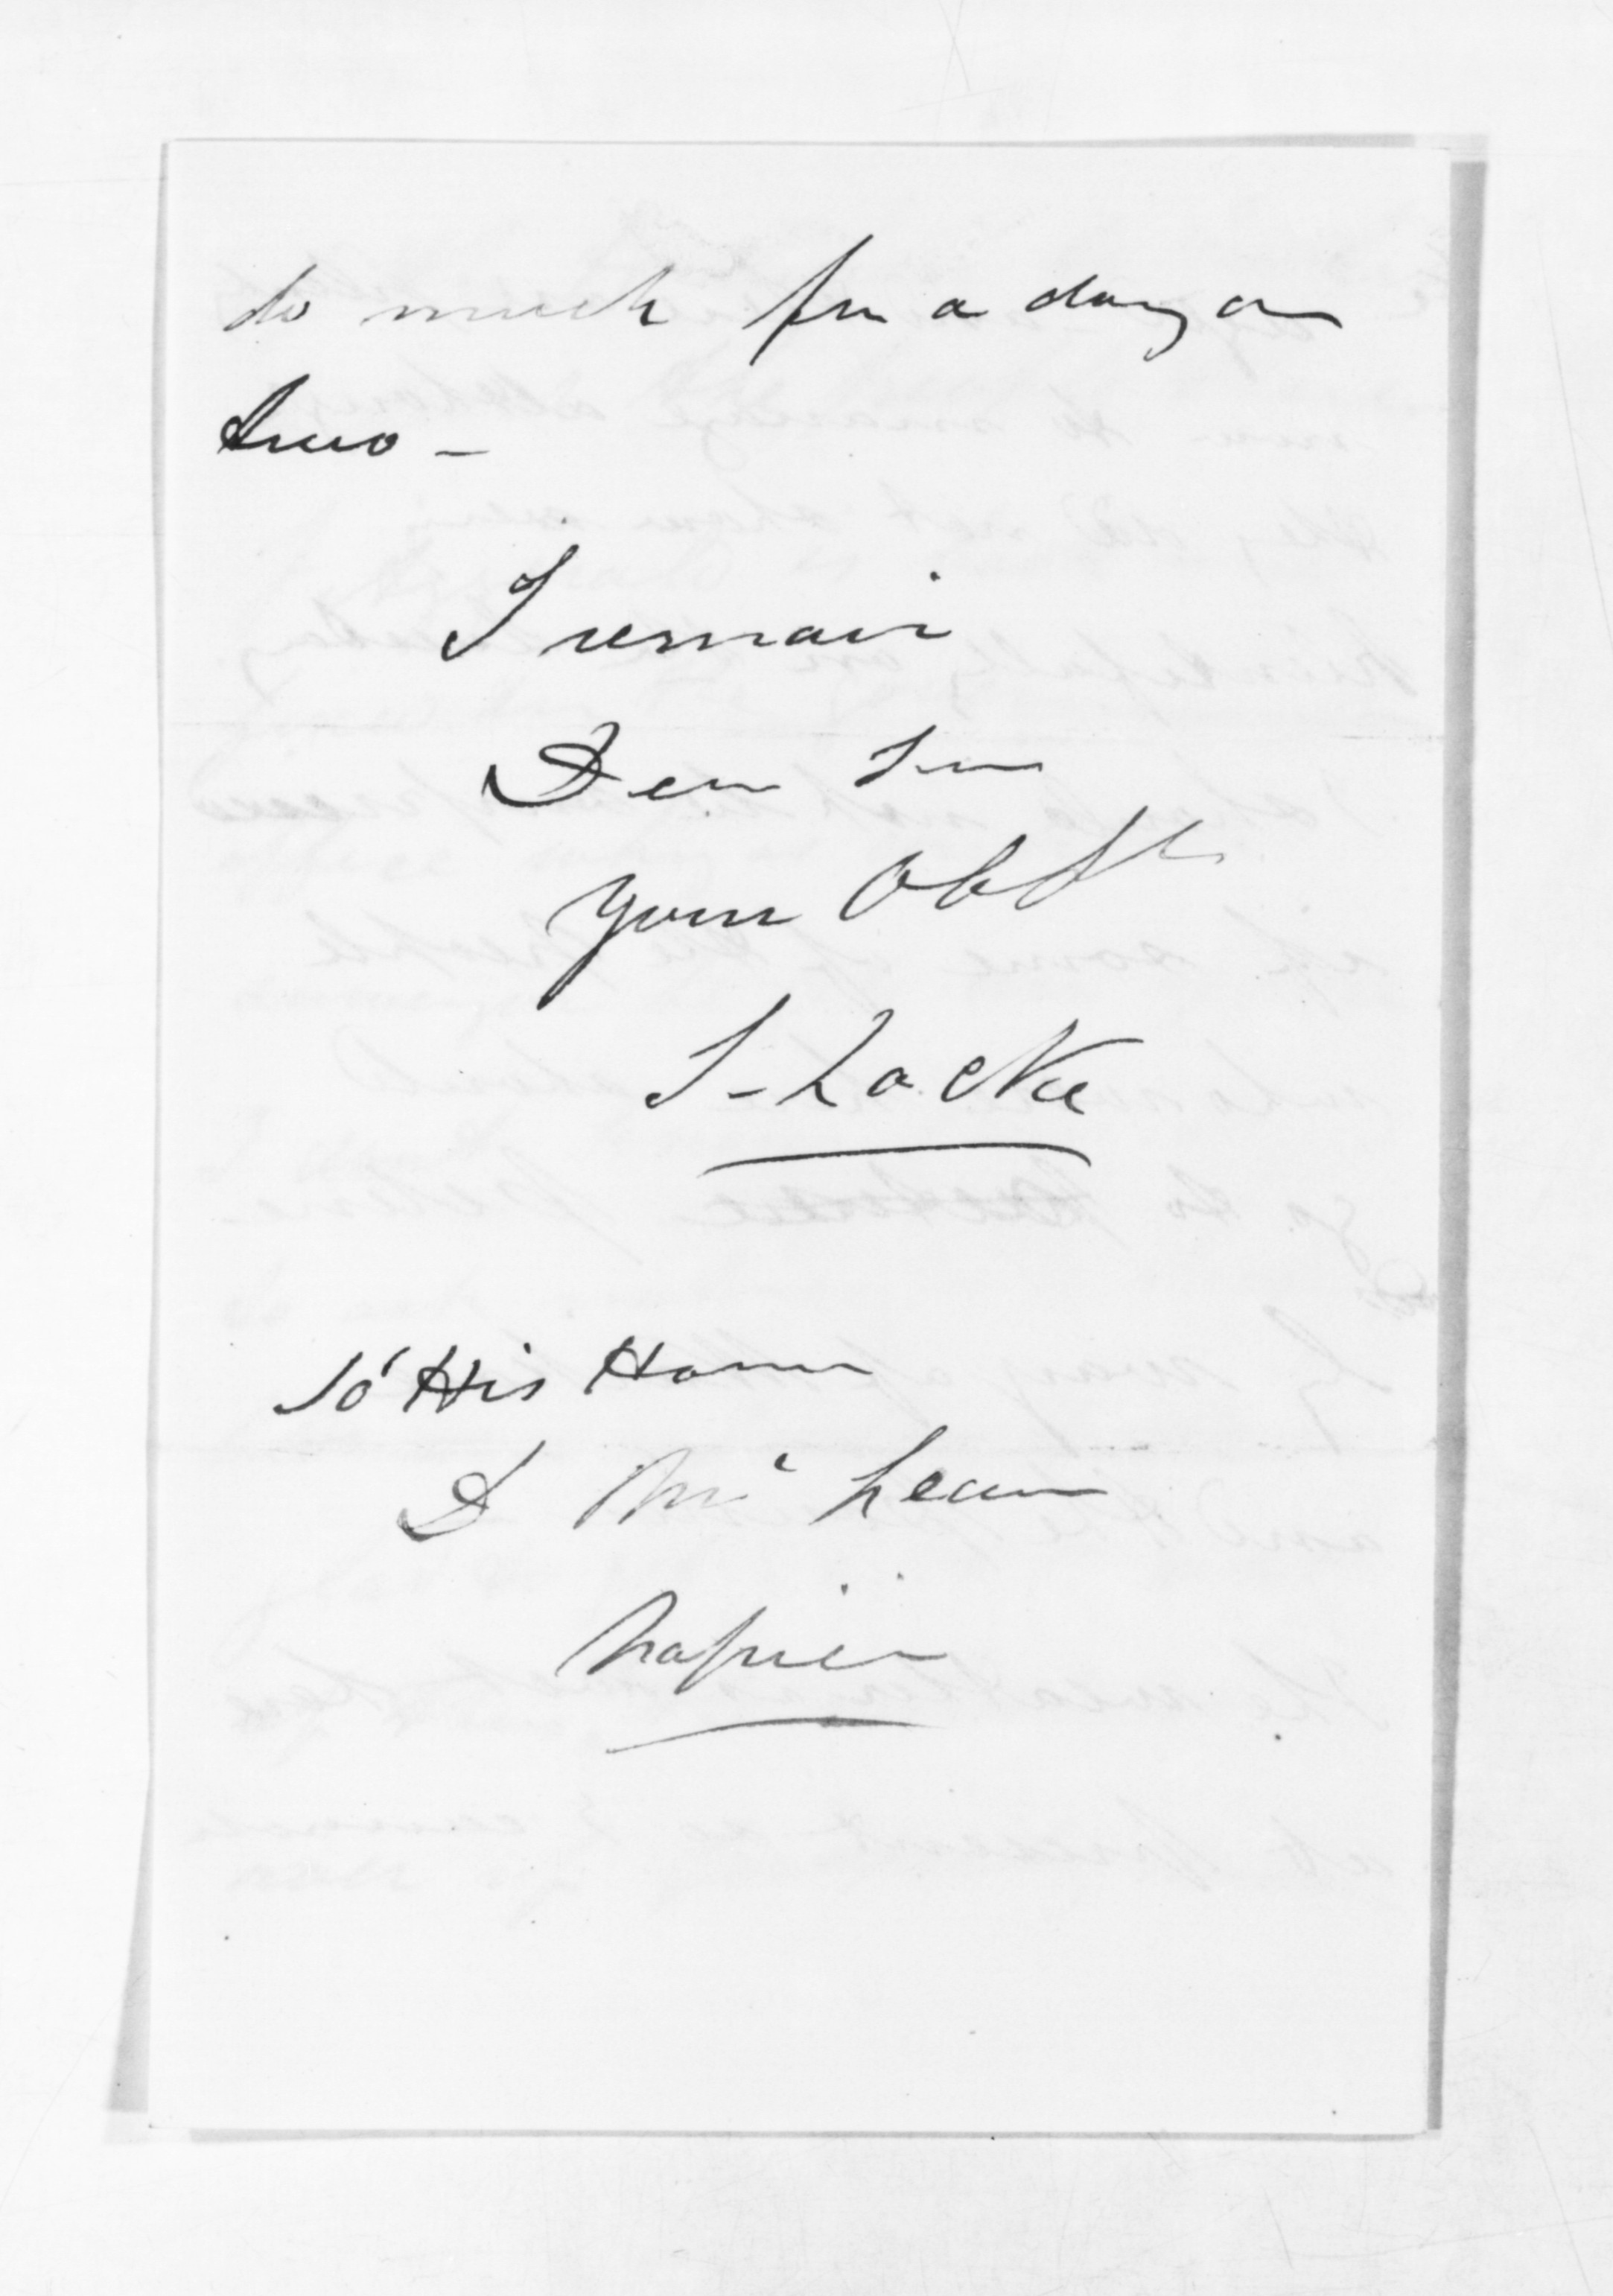 do much for a day or
two -
I remain
Dear Sir
your Obdt
S - Locke
To His Honor
D McLean
Napier